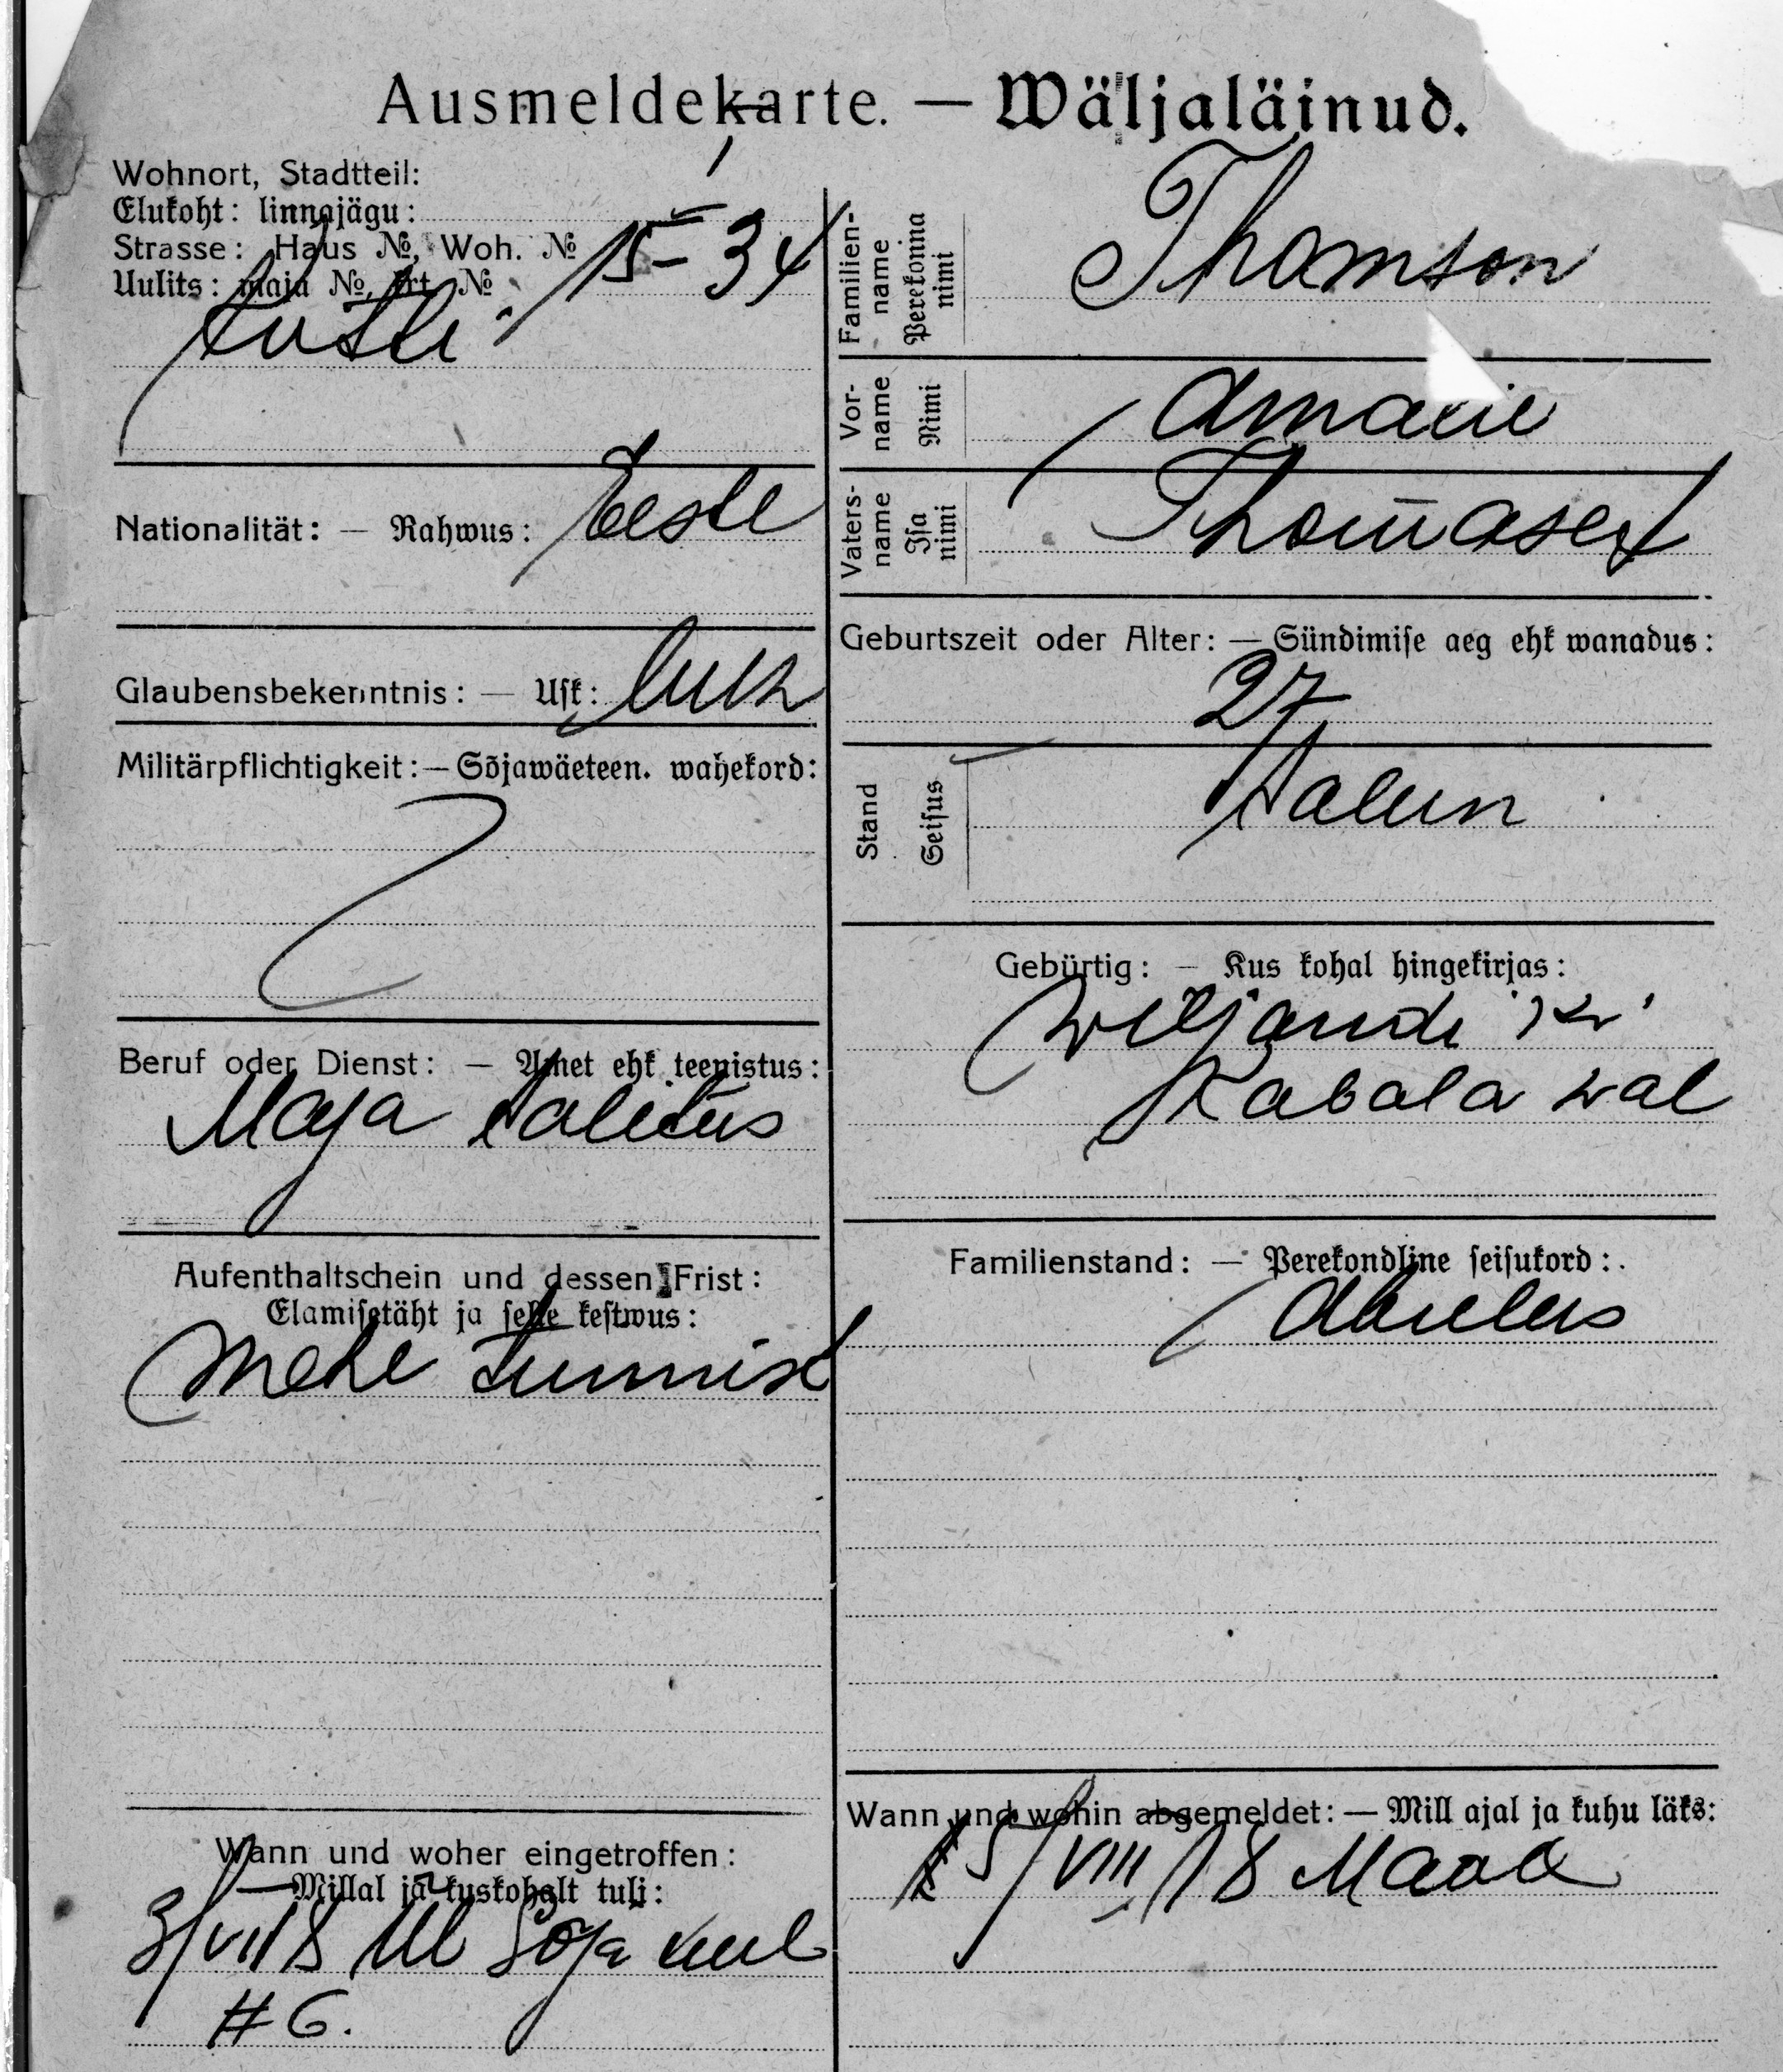 Ausmeldekarte. — Wäljaläinud.
Wohnort, Stadtteil:
Elukoht: linnajägu:
Strasse: Haus №, Woh. №
Uulits: maja №, krt. №
15 - 34
Familienname
Perekonna nimi
Thomson
Vorname
Nimi
Amalie
Vatersname
Isa nimi
Nationalität: — Rahwus: Eesti
Glaubensbekenntnis: — Usk: luth
Militärpflichtigkeit: — Sõjawäeteen. wahekord:
Beruf oder Dienst: — Amet ehk teenistus:
Maja talitus
Aufenthaltschein und dessen Frist:
Elamisetäht ja selle kestwus:
Mehe tunnist
Wann und woher eingetroffen:
— Millal ja kuskohalt tuli:
3/VII 18 Sõja
# 6.
Geburtszeit oder Alter: — Sündimise aeg ehk wanadus:
27
Stand
Seisus
Talun
Gebürtig: — Kus kohal hingekirjas:
Wiljandi kr
Kabala wal
Familienstand: — Perekondline seisukord:
Abielus
Wann und wohin abgemeldet: — Mill ajal ja kuhu läks:
15/VIII 18 Maale